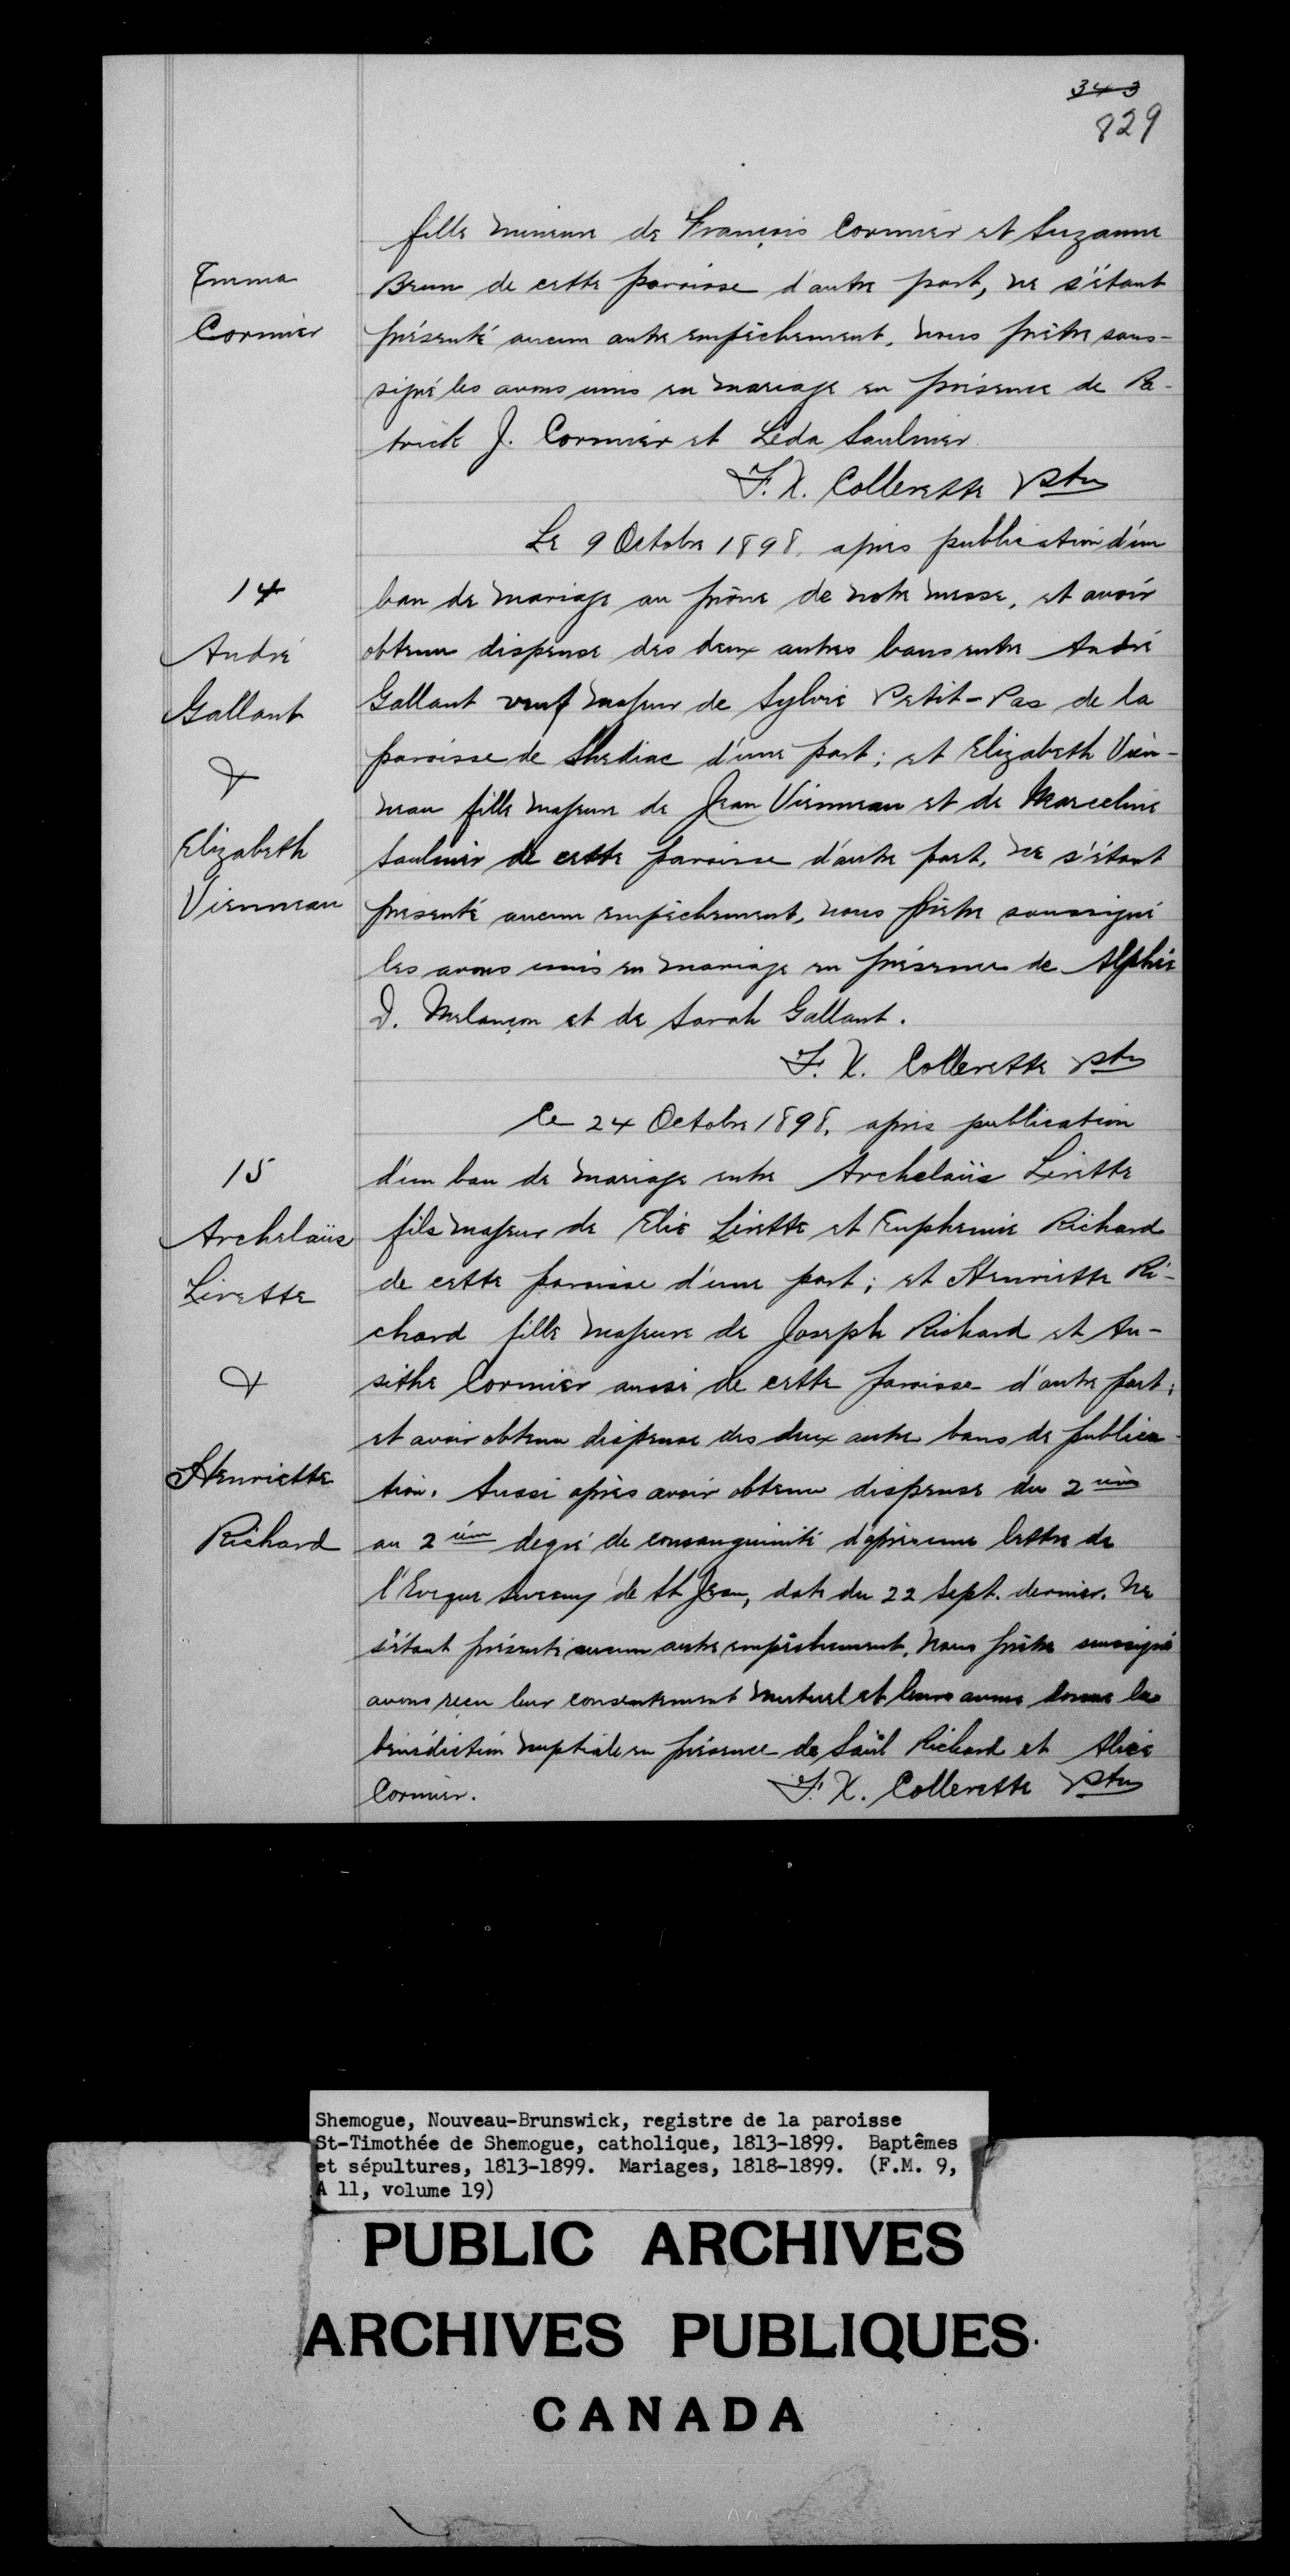 343
829
fille mineure de François Cormier et Suzanne
Emma
Brun de cette paroisse d'autre part, ne s'étant
Cormier
présenté aucun autre empêchement, nous prêtre sous-
signé les avons unis en mariage en présence de Pa-
trick J. Cormier et Léda Saulnier
F. X. Collerette Ptre
Le 9 Octobre 1898, après publication d'un
14
ban de mariage au prône de notre messe, et avoir
André
obtenu dispense des deux autres bans entre André
Gallant
Gallant veuf majeur de Sylvie Petit-Pas de la
&
paroisse de Shediac d'une part; et Elizabeth Vien-
neau fille majeure de Jean Vienneau et de Marceline
Elizabeth
Saulnier de cette paroisse d'autre part, ne s'étant
Vienneau
présenté aucun empêchement, nous prêtre soussigné
les avons unis en mariage en présence de Alphée
D. Melançon et de Sarah Gallant.
F. X. Collerette Ptre
Ce 24 Octobre 1898, après publication
15
d'un ban de mariage entre Archelaüs Lirette
Archelaüs
fils majeur de Elie Lirette et Euphemie Richard
Lirette
de cette paroisse d'une part; et Henriette Ri-
chard fille majeure de Joseph Richard et An-
&
sithe Cormier aussi de cette paroisse d'autre part;
et avoir obtenu dispense des deux autre bans de publica-
Henriette
tion. Aussi après avoir obtenu dispense du 2 ième
Richard
au 2 ième degré de consanguinité d'après une lettre de
l'Evêque Sweeny de St Jean, date du 22 Sept. dernier. Ne
s'étant présenté aucun autre empêchement, nous prêtre soussigné
avons reçu leur consentement mutuel et leurs avons donné la
bénédiction nuptiale en présence de Saül Richard et Alice
Cormier.
F. X. Collerette Ptre
Shemogue, Nouveau-Brunswick, registre de la paroisse
St-Timothée de Shemogue, catholique, 1813-1899. Baptêmes
et sépultures, 1813-1899. Mariages, 1818-1899. (F.M. 9,
A 11, volume 19)
PUBLIC ARCHIVES
ARCHIVES PUBLIQUES
CANADA